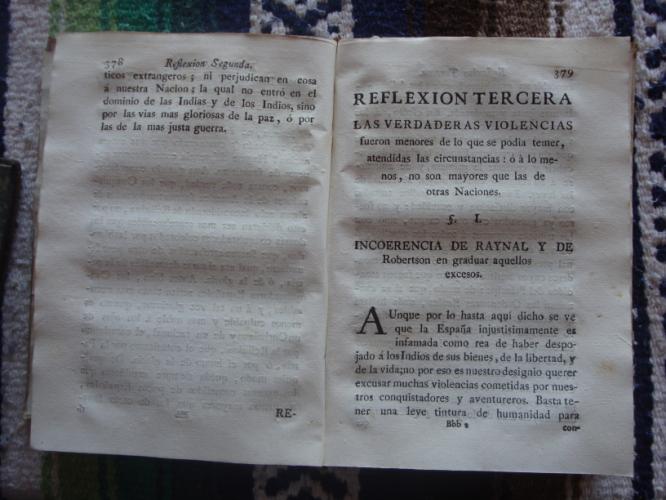 378 Reflexion Segunda.
ticos extrangeros; ni perjudican en cosa
á nuestra Nacion; la qual no entró en el
dominio de las Indias y de los Indios, sino
por las vias mas gloriosas de la paz, ó por
las de la mas justa guerra.
RE-
379
REFLEXION TERCERA
LAS VERDADERAS VIOLENCIAS
fueron menores de lo que se podia temer,
atendidas las circunstancias: ó à lo me-
nos, no son mayores que las de
otras Naciones.
§. I.
INCOERENCIA DE RAYNAL Y DE
Robertson en graduar aquellos
excesos.
AUnque por lo hasta aqui dicho se ve
que la España injustisimamente es
infamada como rea de haber despo-
jado á los Indios de sus bienes, de la libertad, y
de la vida; no por eso es nuestro designio querer
excusar muchas violencias cometidas por nues-
tros conquistadores y aventureros. Basta te-
ner una leve tintura de humanidad para
Bbb 2
con-